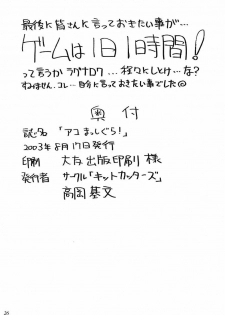 最後に皆さんに言っておきたい事が…
ゲームは1日1時間!
って言うか ラグナロク…程々にしとけ…な?
すみません。コレ…自分に言っておきたい事でした
奥付
誌名 「アコまっしぐら!」
2003年8月17日発行
印刷 大友出版印刷 様
発行者 サークル「キットカッターズ」
高岡基文
26